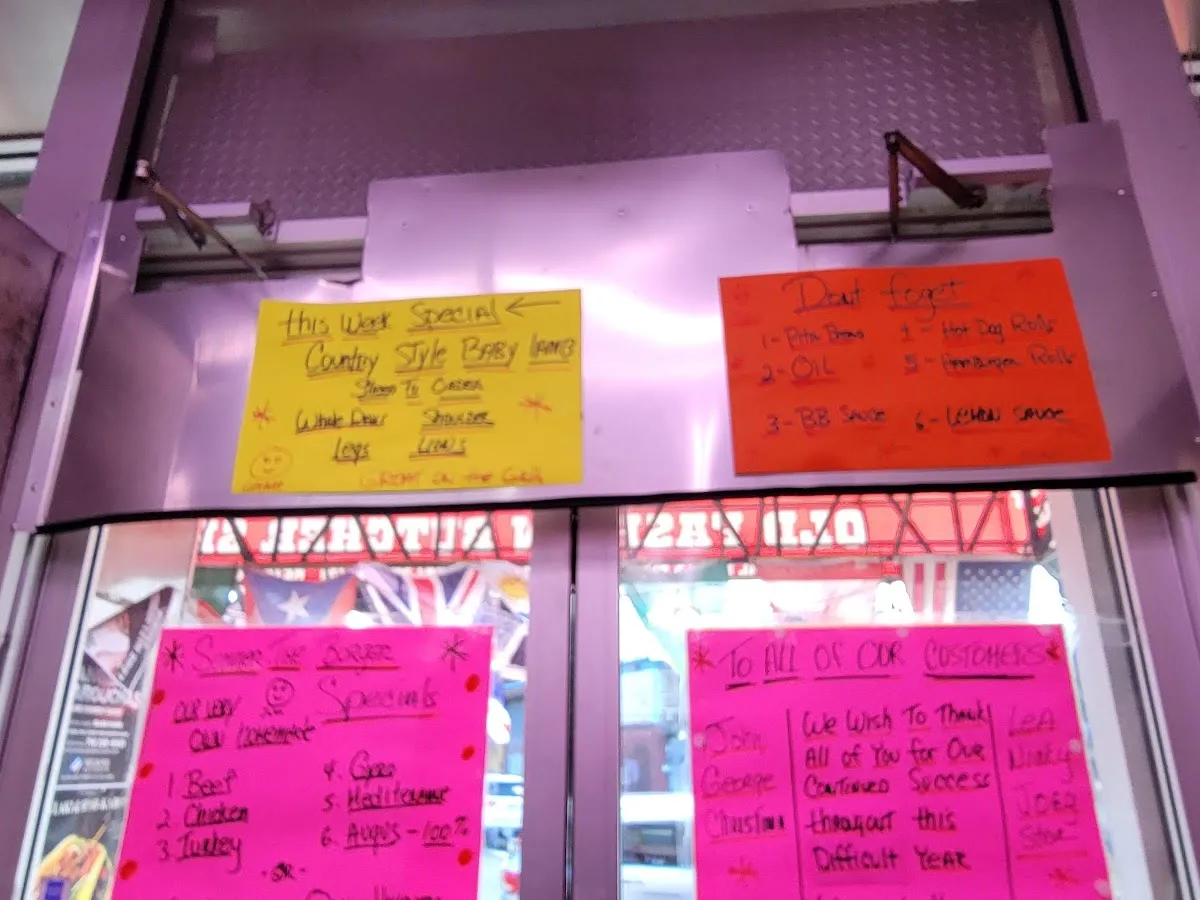 this Week Special
Country Style BABY LAMB
Whole
SHOULDER
Legs
on the Grill
Dont foget
1 - Pita Bread
2 - OIL
3 - BB SAUCE
1 - Hot Dog Rolls
5 - Hamburger Rolls
6 - LEMON SAUCE
OLD FASH
BUTCHER
* Summer Time BURGER *
OUR VERY
OWN HOMEMADE
Specials
1 Beef
2. Chicken
3. Turkey
4. Gyro
5. Mediterane
6. Augus - 100%
- OR -
* To ALL OF OUR CUSTOMERS *
John
George
Christina
We Wish To Thank
All of You for Our
Continued Success
througout this
Difficult YEAR
Joey